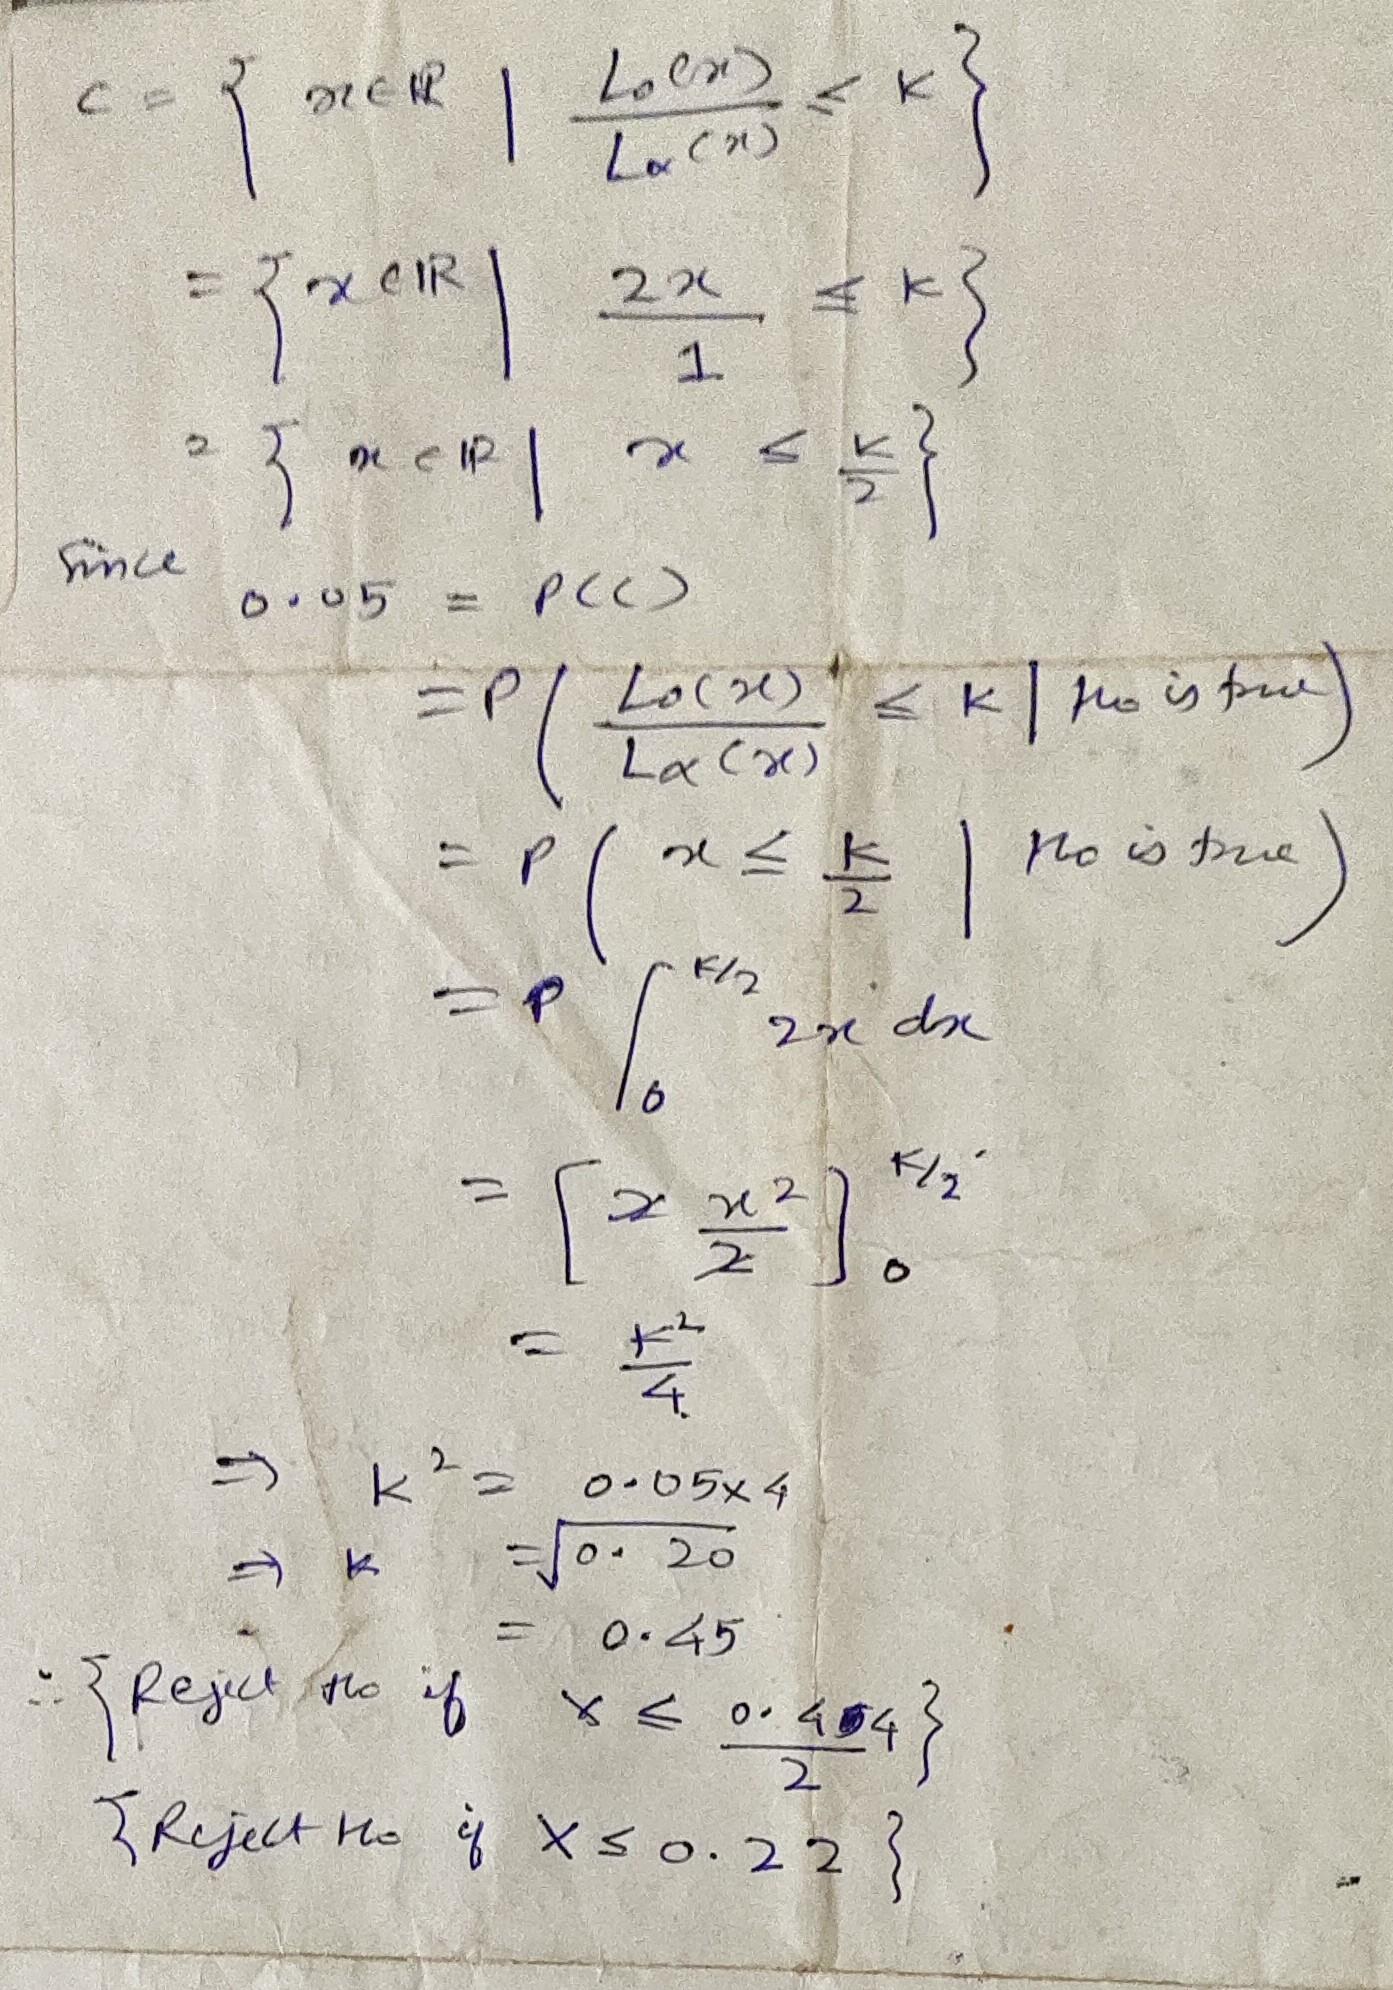 C = { x ∈ ℝ | L₀(x) / Lα(x) ≤ K }
= { x ∈ ℝ | 2x / 1 ≤ K }
= { x ∈ ℝ | x ≤ K/2 }
Since
0.05 = P(C)
= P ( L₀(x) / Lα(x) ≤ K | H₀ is true )
= P ( x ≤ K/2 | H₀ is true )
= P ∫₀^{K/2} 2x dx
= [ 2 x²/2 ]₀^{K/2}
= K²/4
⇒ K² = 0.05 x 4
⇒ K = √0.20
= 0.45
∴ { Reject H₀ if X ≤ 0.44 / 2 }
{ Reject H₀ if X ≤ 0.22 }